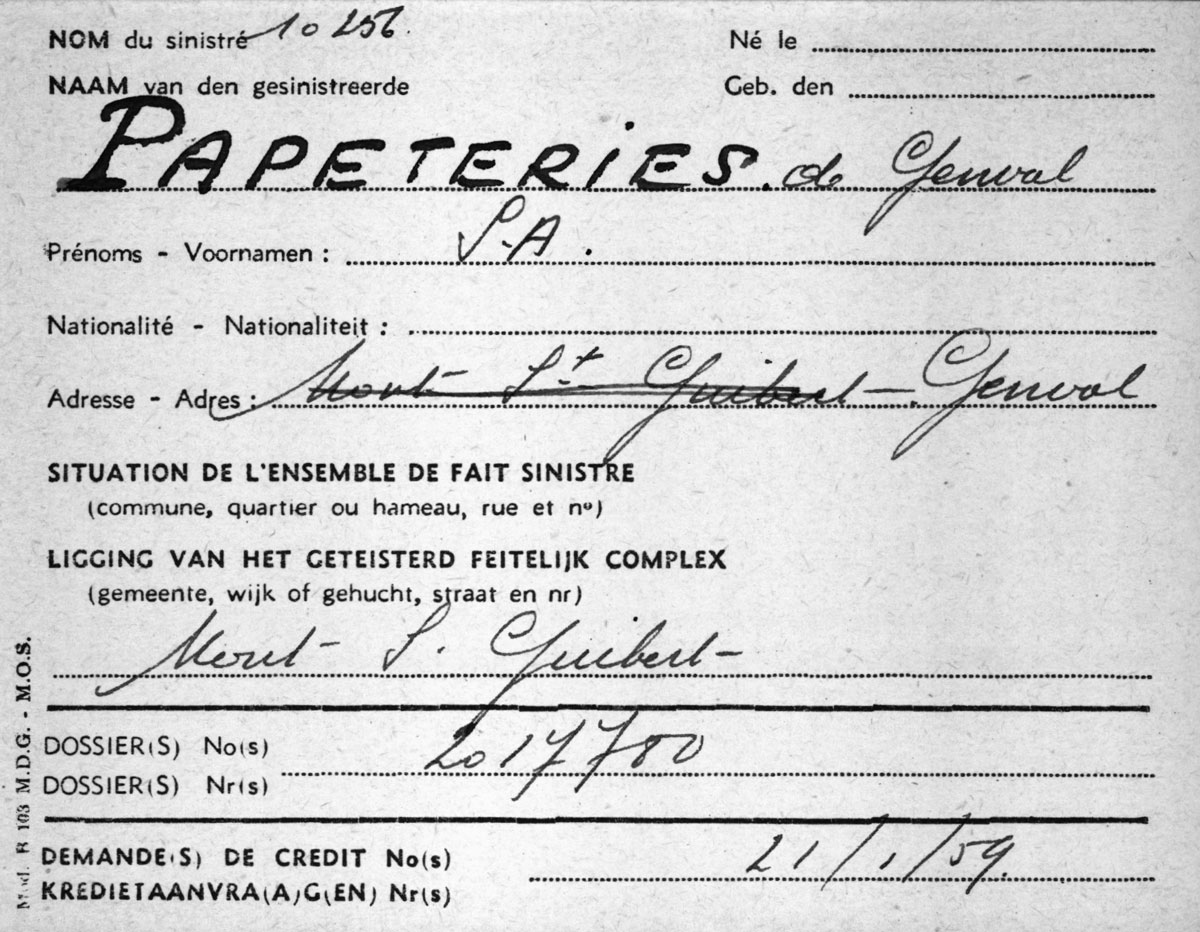 NOM du sinistré 10 256
Né le
NAAM van den gesinistreerde
Geb. den
PAPETERIES. de Genval
Prénoms - Voornamen : S.A.
Nationalité - Nationaliteit :
Adresse - Adres : Mont St Guibert - Genval
SITUATION DE L'ENSEMBLE DE FAIT SINISTRE
(commune, quartier ou hameau, rue et nº)
LIGGING VAN HET GETEISTERD FEITELIJK COMPLEX
(gemeente, wijk of gehucht, straat en nr)
Mont S. Guibert
DOSSIER(S) No(s) 2017780
DOSSIER(S) Nr(s)
DEMANDE(S) DE CREDIT No(s) 21/1/59.
KREDIETAANVRA(A)G(EN) Nr(s)
Mod. B 103 M.D.G. - M.O.S.